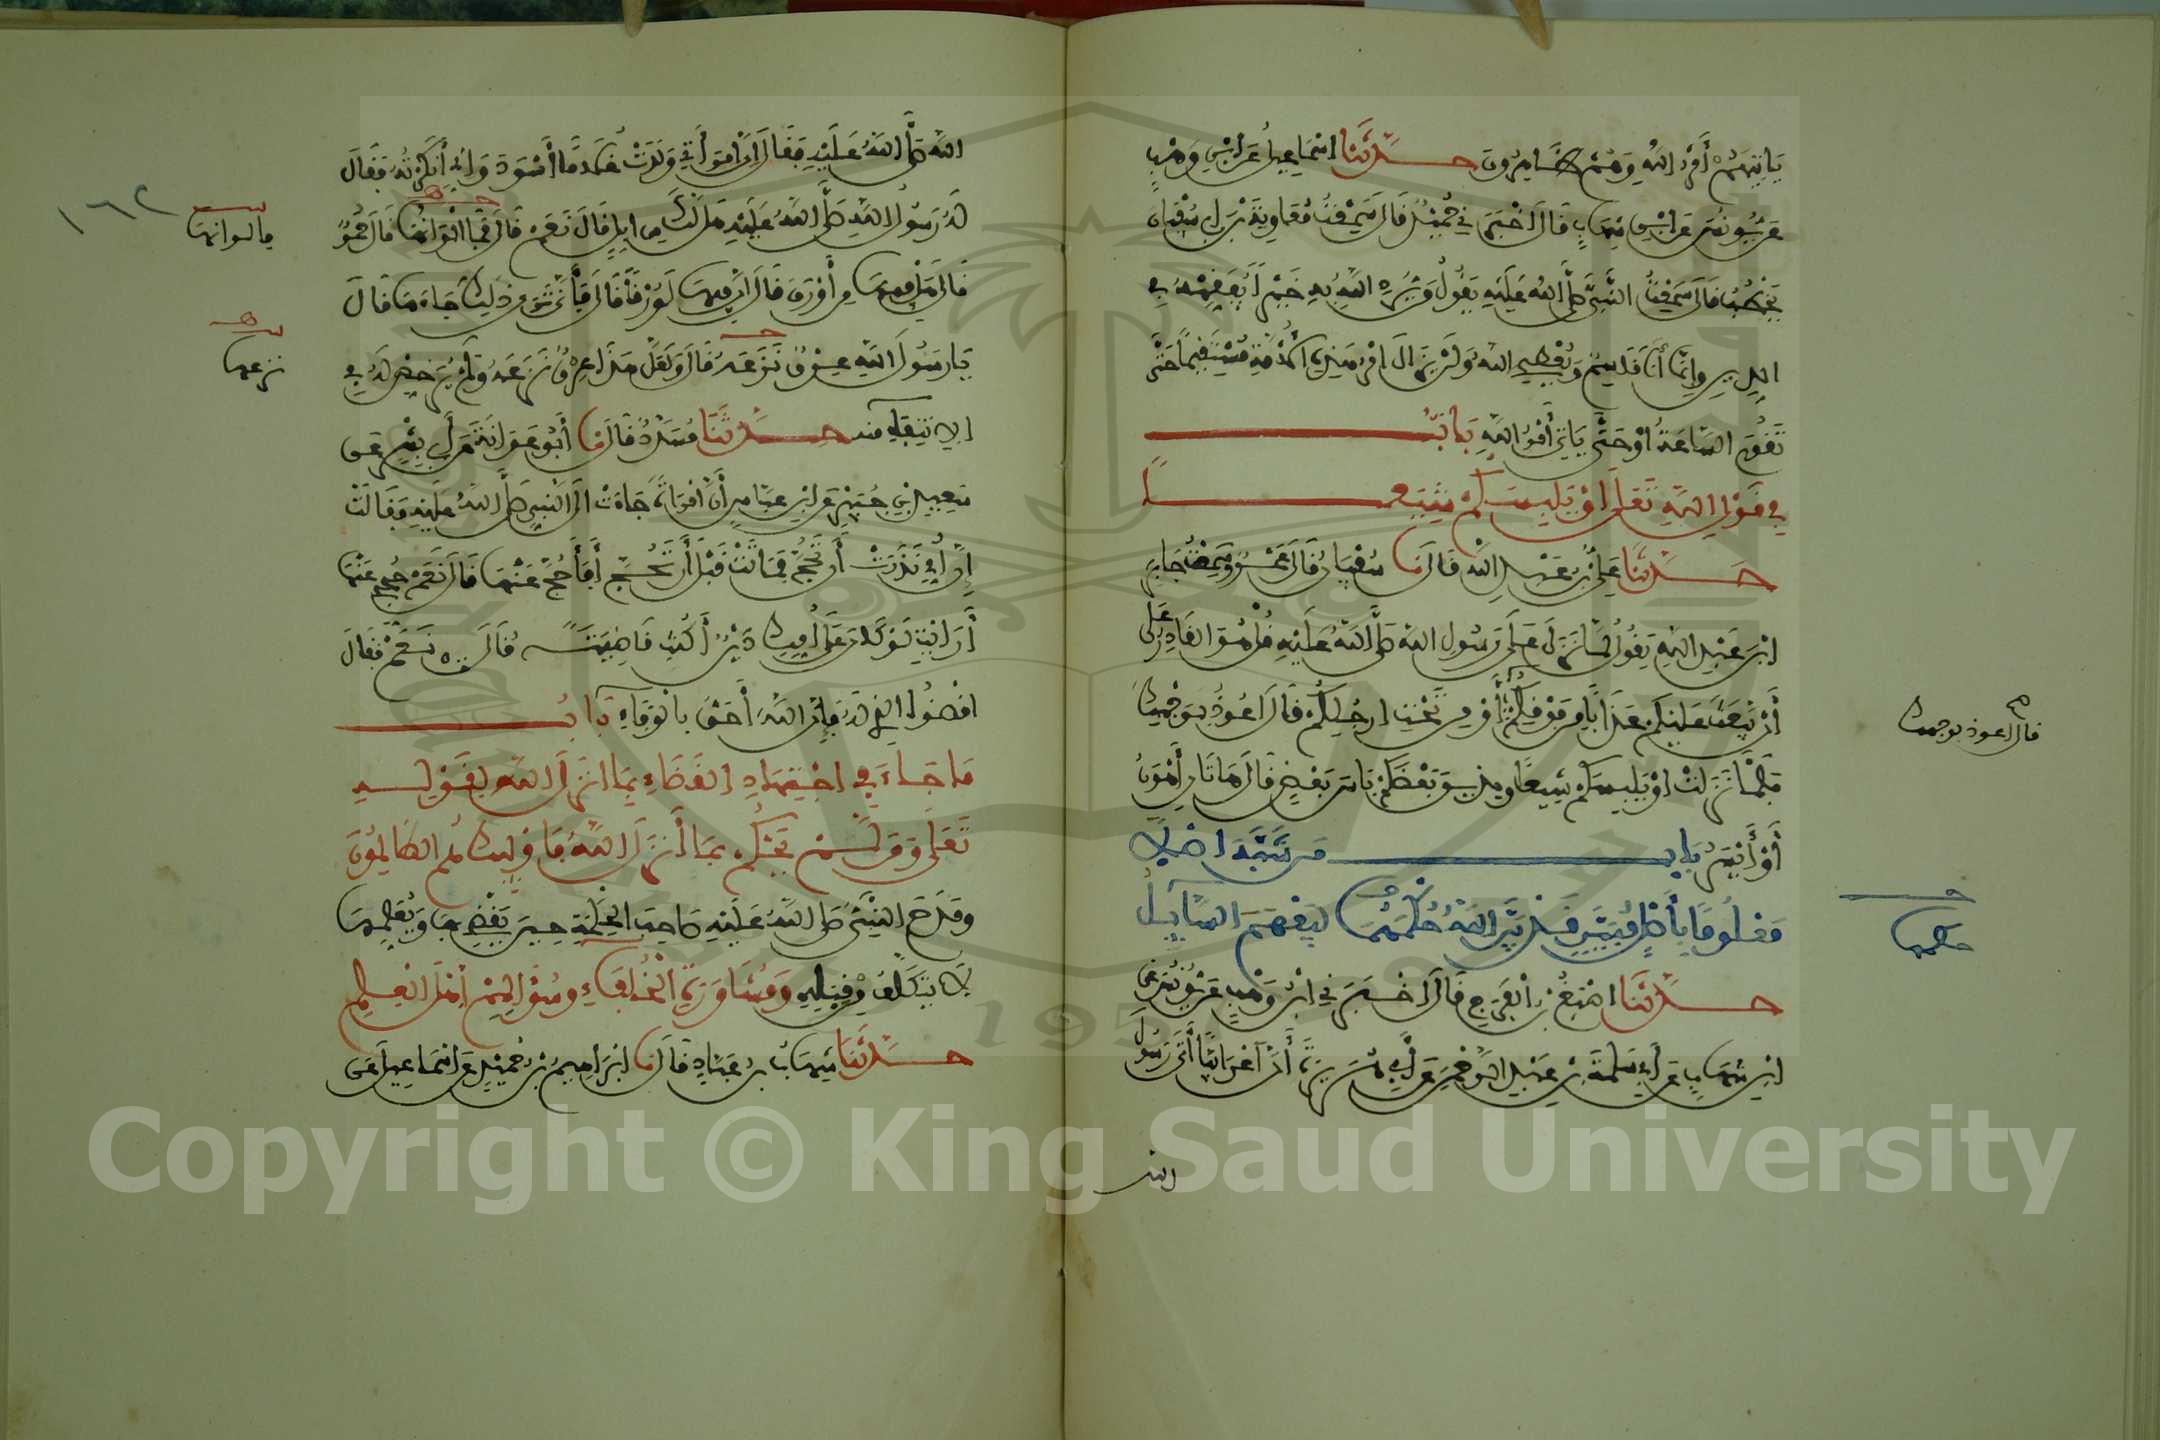 ياتيهم أمر الله وهم ظاهرون حدثنا اسماعيل عن ابن وهب
عن يونس عن ابن شهاب قال اخبرني حميد قال سمعت معاوية بن ابي سفيان
يخطب قال سمعت النبي صلى الله عليه يقول من يرد الله به خيرا يفقهه في
الدين وانما أنا قاسم ويعطي الله ولن يزال امر هذه الأمة مستقيما حتى
تقوم الساعة أو حتى ياتي أمر الله باب
في قول الله تعلى او يلبسكم شيعا
حدثنا علي بن عبد الله قال نا سفيان قال عمرو سمعت جابر
ابن عبد الله يقول لما نزل على رسول الله صلى الله عليه قل هو القادر على
أن يبعث عليكم عذابا من فوقكم أو من تحت ارجلكم قال اعوذ بوجهك
فلما نزلت او يلبسكم شيعا ويذيق بعضكم باس بعض قال هاتان أهون
أو أيسر باب من شبه اصلا
معلوما بأصل مبين قد بين الله حكمهما ليفهم السايل
حدثنا اصبغ بن الفرج قال اخبرني ابن وهب عن يونس عن
ابن شهاب عن أبي سلمة بن عبد الرحمن عن أبي هريرة أن أعرابيا أتى رسول
الله
قال اعوذ بوجهك
حكمهما
الله صلى الله عليه فقال إن امرأتي ولدت غلاما أسود وإني أنكرته فقال
له رسول الله صلى الله عليه هل لك من ابل قال نعم قال فما الوانها قال حمر
قال هل فيها من أورق قال إن فيها لورقا قال فأنى ترى ذلك جاءها قال
يا رسول الله عرق نزعه قال ولعل هذا عرق نزعه ولم يرخص له في
الانتفاء منه حدثنا مسدد قال نا أبو عوانة عن أبي بشر عن
سعيد بن جبير عن ابن عباس أن امرأة جاءت الى النبي صلى الله عليه فقالت
إن أمي نذرت أن تحج فماتت قبل أن تحج أفأحج عنها قال نعم حجي عنها
أرايت لو كان على أمك دين أكنت قاضيته قالت نعم فقال
اقضوا الذي له فإن الله أحق بالوفاء باب
ما جاء في اجتهاد القضاء بما انزل الله لقوله
تعلى ومن لم يحكم بما أنزل الله فاوليك هم الظالمون
ومدح النبي صلى الله عليه صاحب الحكمة حين يقضي بها ويعلمها
لا يتكلف من قبله ومشاورة الخلفاء وسؤالهم أهل العلم
حدثنا شهاب بن عباد قال نا ابراهيم بن حميد عن اسماعيل عن
١٦٢
ما الوانها
نزعها
Copyright © King Saud University